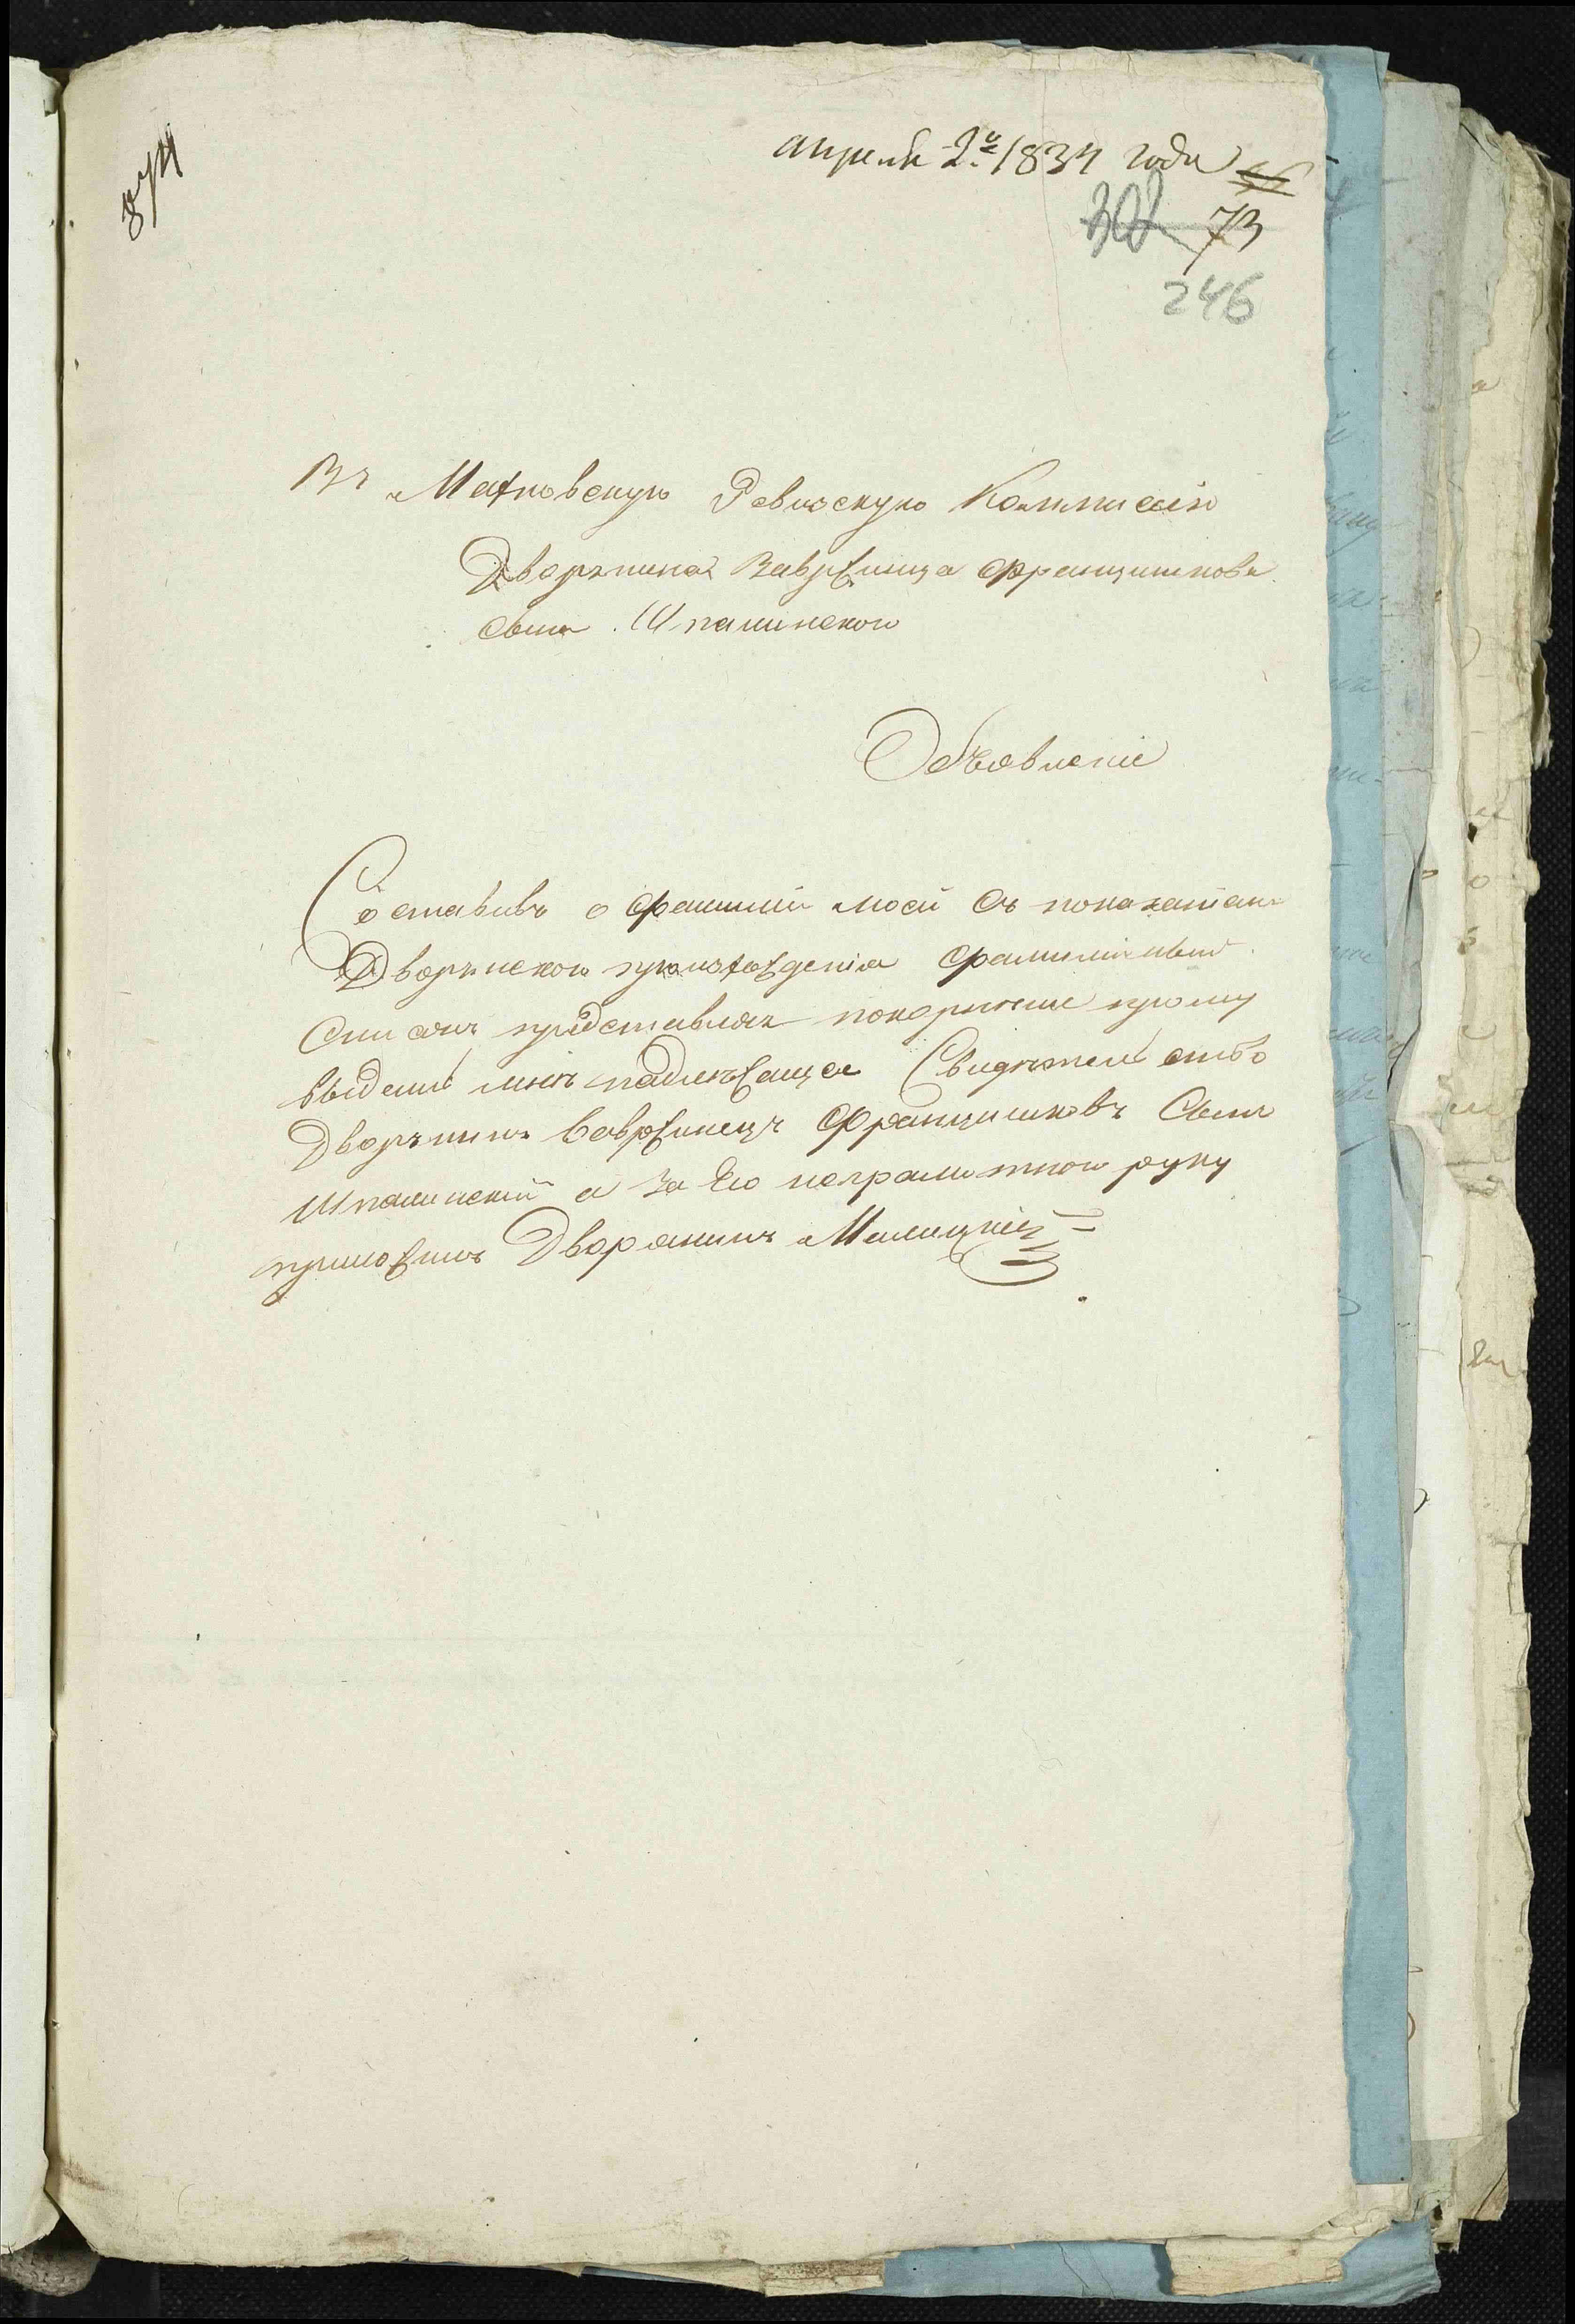 апреля 2го 1834 года
874
73
246
Въ Махновскую Ревизскую Коммисію
Дворянина Вавржинца Францишкова
сына Шпалинского
Объявленіе
Составивъ о фамиліи моей съ показаніемъ
Дворянского произхожденія фамилійный
Списокъ представляя покорнейше прошу
выдать мнѣ надлежащее Свидѣтельство
Дворянинъ Вавржинецъ Францишковъ Сынъ
Шпалинскій а за Его неграмотного руку
приложилъ Дворянинъ